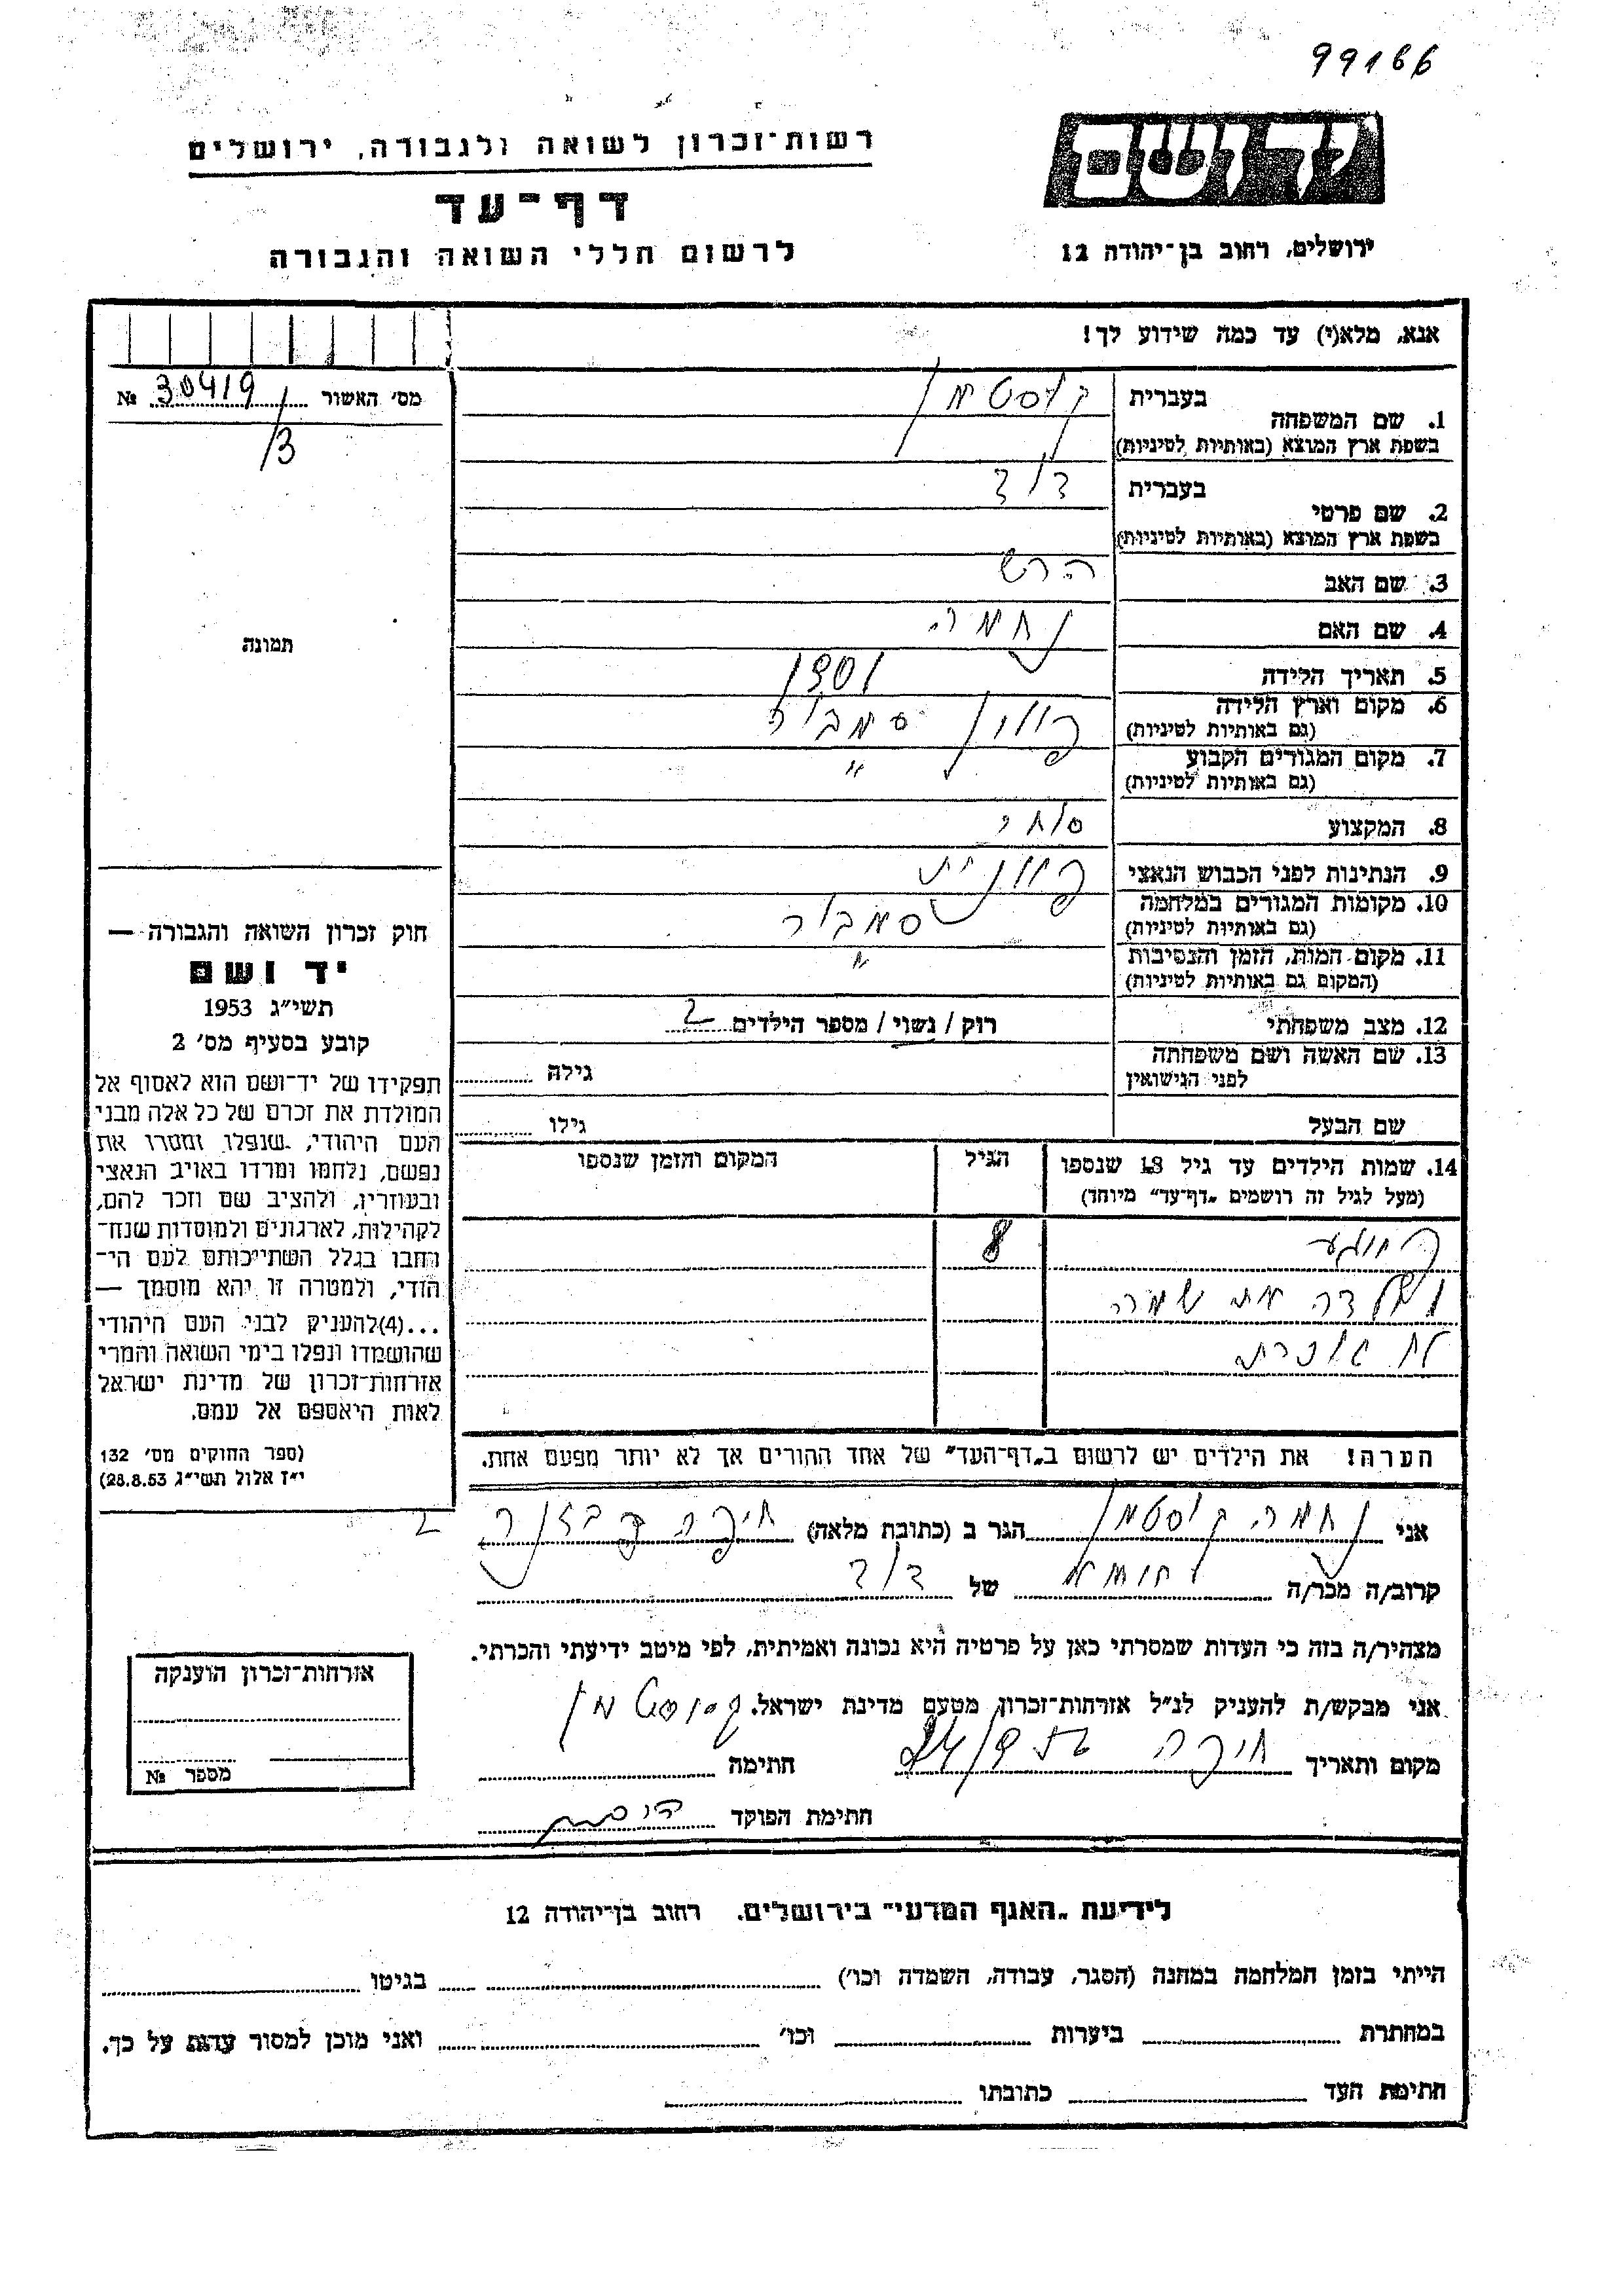 99166
יד ושם
רשות־זכרון לשואה ולגבורה, ירושלים
דף־עד
לרשום חללי השואה והגבורה
ירושלים, רחוב בן־יהודה 12
אנא, מלא(י) עד כמה שידוע לך!
מס׳ האשור 30419 №
/3
1. שם המשפחה
בעברית קוסטמן
בשפת ארץ המוצא (באותיות לטיניות)
2. שם פרטי
בעברית דוד
בשפת ארץ המוצא (באותיות לטיניות)
3. שם האב הרש
4. שם האם נחמה
5. תאריך הלידה 1901
6. מקום וארץ הלידה פולין סמבור
(גם באותיות לטיניות)
7. מקום המגורים הקבוע "
(גם באותיות לטיניות)
8. המקצוע סוחר
9. הנתינות לפני הכבוש הנאצי פולנית
10. מקומות המגורים במלחמה סמבור
(גם באותיות לטיניות)
11. מקום המות, הזמן והנסיבות "
(המקום גם באותיות לטיניות)
12. מצב משפחתי רוק / נשוי / מספר הילדים 2
13. שם האשה ושם משפחתה
לפני הנישואין
גילה
שם הבעל
גילו
14. שמות הילדים עד גיל 18 שנספו הגיל המקום והזמן שנספו
(מעל לגיל זה רושמים „דף־עד״ מיוחד)
8
וילדה את שמה
לא זוכרת
הערה! את הילדים יש לרשום ב„דף־העד״ של אחד ההורים אך לא יותר מפעם אחת.
תמונה
חוק זכרון השואה והגבורה —
יד ושם
תשי״ג 1953
קובע בסעיף מס׳ 2
תפקידו של יד־ושם הוא לאסוף אל
המולדת את זכרם של כל אלה מבני
העם היהודי, שנפלו ומסרו את
נפשם, נלחמו ומרדו באויב הנאצי
ובעוזריו, ולהציב שם וזכר להם,
לקהילות, לארגונים ולמוסדות שנח־
רחבו בגלל השתייכותם לעם הי־
הודי, ולמטרה זו יהא מוסמך —
...(4)להעניק לבני העם היהודי
שהושמדו ונפלו בימי השואה והמרי
אזרחות־זכרון של מדינת ישראל
לאות היאספם אל עמם.
(ספר החוקים מס׳ 132
י״ז אלול תשי״ג 28.8.53)
אני נחמה קוסטמן הגר ב (כתובת מלאה) חיפה 2
קרוב/ה מכר/ה של דוד
מצהיר/ה בזה כי העדות שמסרתי כאן על פרטיה היא נכונה ואמיתית, לפי מיטב ידיעתי והכרתי.
אני מבקש/ת להעניק לנ״ל אזרחות־זכרון מטעם מדינת ישראל.
מקום ותאריך חיפה חתימה קוסטמן
חתימת הפוקד
אזרחות־זכרון הוענקה
מספר №
לידיעת „האגף המדעי״ בירושלים. רחוב בן־יהודה 12
הייתי בזמן המלחמה במחנה (הסגר, עבודה, השמדה וכו׳) בגיטו
במחתרת ביערות וכו׳ ואני מוכן למסור עדות על כך.
חתימת העד כתובתו